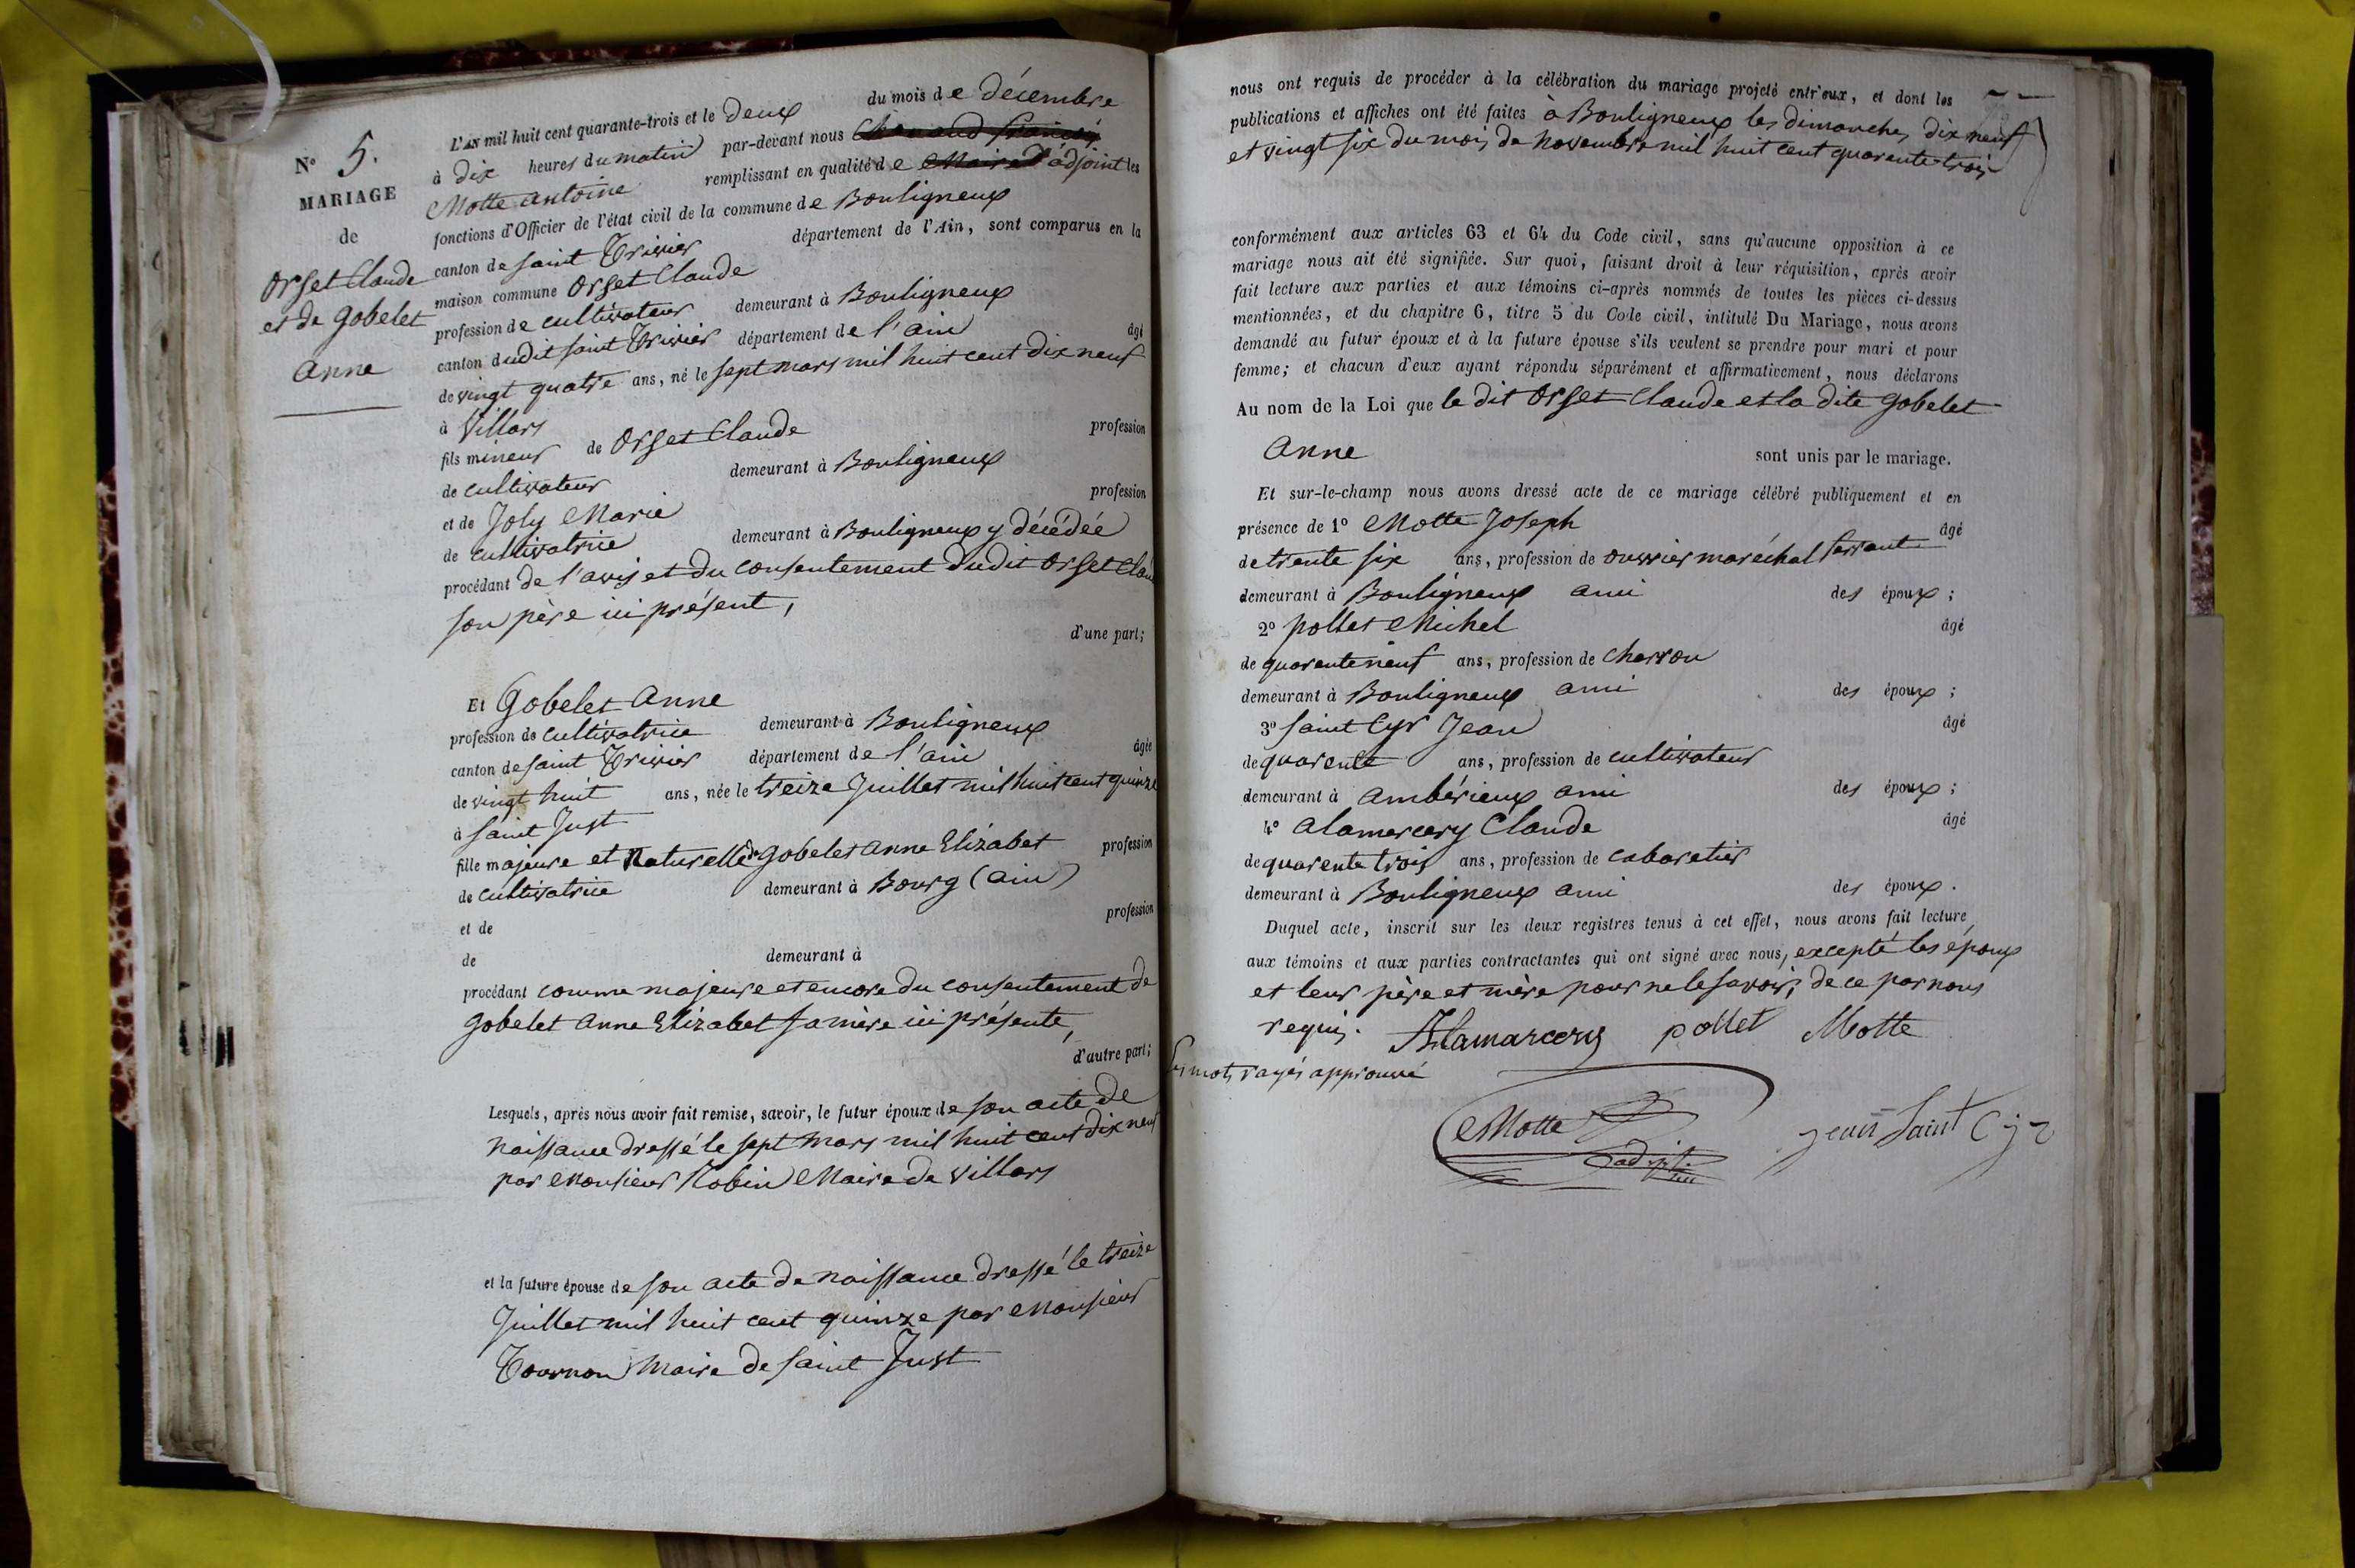 N° 5.
MARIAGE
de
Orset Claude
et de gobelet
Anne
L'AN mil huit cent quarante-trois et le deux du mois de décembre
à dix heures du matin par-devant nous
Motte antoine remplissant en qualité de Maire d'adjoint les
fonctions d'Officier de l'état civil de la commune de Bouligneux
canton de saint Trivier département de l'Ain, sont comparus en la
maison commune Orset Claude
profession de cultivateur demeurant à Bouligneux
canton dudit saint Trivier département de l'ain âgé
de vingt quatre ans, né le sept mars mil huit cent dix neuf
à Villars
fils mineur de Orset Claude profession
de cultivateur demeurant à Bouligneux
et de Joly Marie profession
de cultivatrice demeurant à Bouligneux y décédée
procédant de l'avis et du consentement dudit Orset Clau
son père ici présent,
d'une part;
Et Gobelet Anne
profession de cultivatrice demeurant à Bouligneux
canton de saint Trivier département de l'ain âgée
de vingt huit ans, née le treize Juillet mil huit cent quinze
à saint Just
fille majeure et Naturelle de gobelet anne Elizabet profession
de cultivatrice demeurant à Bourg (ain)
et de profession
de demeurant à
procédant comme majeure et encore du consentement de
gobelet anne Elizabet sa mère ici présente,
d'autre part;
Lesquels, après nous avoir fait remise, savoir, le futur époux de son acte de
naissance dressé le sept mars mil huit cent dix neuf
par Monsieur Robin Maire de Villars
et la future épouse de son acte de naissance dressé le treize
Juillet mil huit cent quinze par Monsieur
Tournon Maire de saint Just
nous ont requis de procéder à la célébration du mariage projeté entr'eux, et dont les
publications et affiches ont été faites à Bouligneux les dimanches dix neuf
et vingt six du mois de novembre mil huit cent quarente trois
conformément aux articles 63 et 64 du Code civil, sans qu'aucune opposition à ce
mariage nous ait été signifiée. Sur quoi, faisant droit à leur réquisition, après avoir
fait lecture aux parties et aux témoins ci-après nommés de toutes les pièces ci-dessus
mentionnées, et du chapitre 6, titre 5 du Code civil, intitulé Du Mariage, nous avons
demandé au futur époux et à la future épouse s'ils veulent se prendre pour mari et pour
femme; et chacun d'eux ayant répondu séparément et affirmativement, nous déclarons
Au nom de la Loi que le dit Orset Claude et la dite gobelet
Anne sont unis par le mariage.
Et sur-le-champ nous avons dressé acte de ce mariage célébré publiquement et en
présence de 1° Motte Joseph âgé
de trente six ans, profession de ouvrier maréchal ferrant
demeurant à Bouligneux ami des époux;
2° pollet Michel âgé
de quarente neuf ans, profession de charron
demeurant à Bouligneux ami des époux;
3° Saint Cyr Jean âgé
de quarente ans, profession de cultivateur
demeurant à ambérieux ami des époux;
4° alamercery Claude âgé
de quarente trois ans, profession de cabaretier
demeurant à Bouligneux ami des époux.
Duquel acte, inscrit sur les deux registres tenus à cet effet, nous avons fait lecture
aux témoins et aux parties contractantes qui ont signé avec nous, excepté les époux
et leur père et mère pour ne le savoir, de ce par nous
requis. Alamarcery pollet Motte
les mots rayés approuvé
Motte jean Saint Cyr
adjt